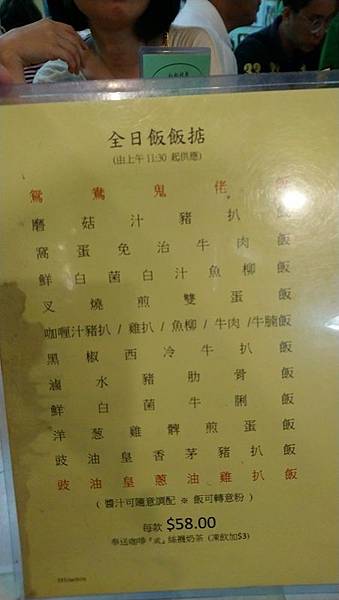 全日飯飯掂
(由上午 11:30 起供應)
鴛鴦鬼佬飯
磨菇汁豬扒飯
窩蛋免治牛肉飯
鮮白菌白汁魚柳飯
叉燒煎雙蛋飯
咖喱汁豬扒 / 雞扒 / 魚柳 / 牛肉 /牛腩飯
黑椒西冷牛扒飯
滷水豬肋骨飯
鮮白菌牛脷飯
洋葱雞髀煎蛋飯
豉油皇香茅豬扒飯
豉油皇葱油雞扒飯
( 醬汁可隨意調配 ※ 飯可轉意粉 )
每款 $58.00
奉送咖啡『或』絲襪奶茶 (凍飲加$3)